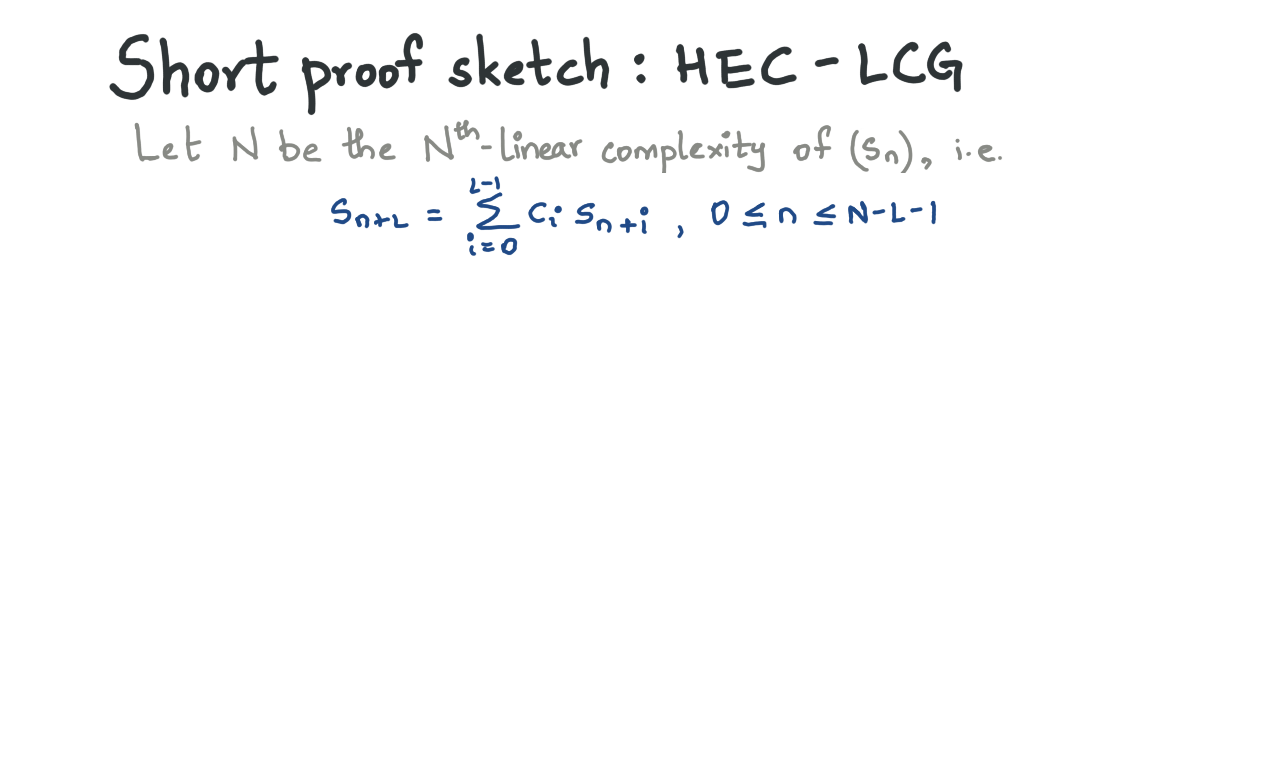 Short proof sketch : HEC - LCG
Let N be the Nᵗʰ-linear complexity of (sₙ), i.e.
Sₙ₊L = ∑_{i=0}^{L-1} Cᵢ Sₙ₊ᵢ , 0 ≤ n ≤ N-L-1